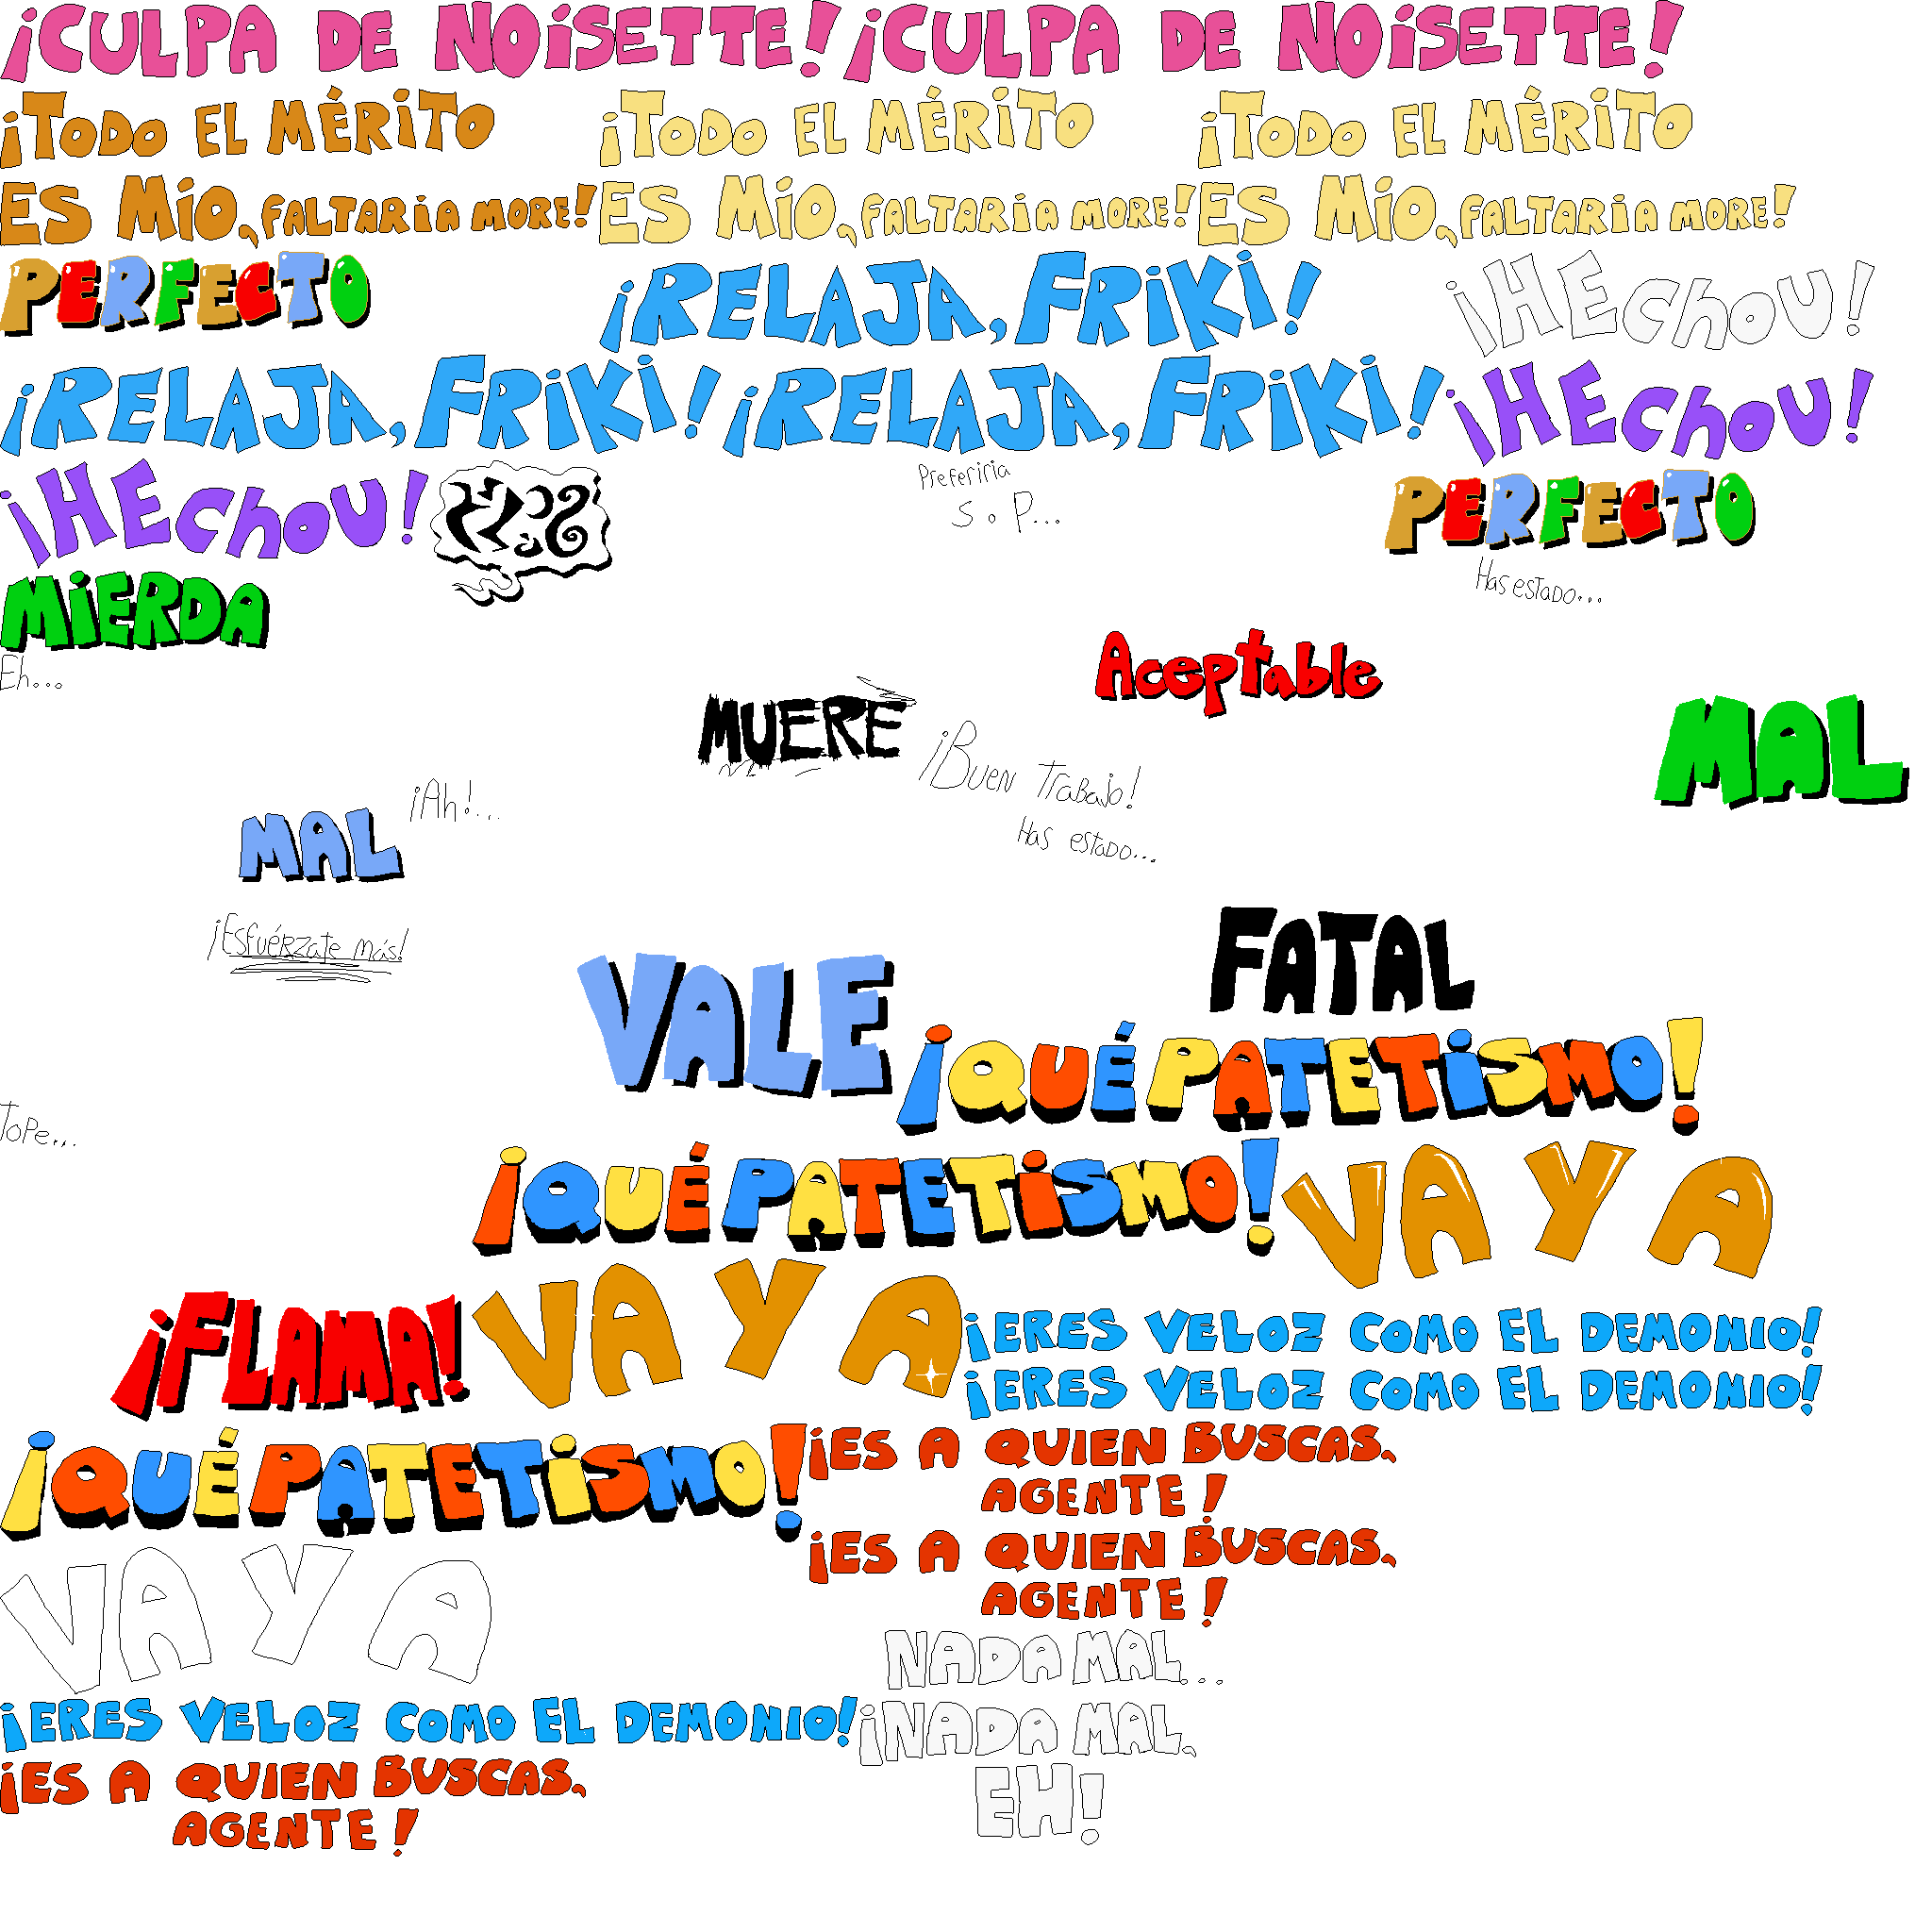 ¡CULPA DE NOiSETTE! ¡CULPA DE NOiSETTE!
¡TODO EL MÉRiTO ¡TODO EL MÉRiTO ¡TODO EL MÉRiTO
ES MÍO, FALTARiA MORE! ES MÍO, FALTARiA MORE! ES MÍO, FALTARiA MORE!
PERFECTO ¡RELAJA, FRiKi! ¡HEchoU!
¡RELAJA, FRiKi! ¡RELAJA, FRiKi! ¡HEchoU!
¡HEchoU!
Preferiria
S o P...
PERFECTO
MiERDA
Has estado...
Eh...
Aceptable
MUERE
MAL
¡Buen Trabajo!
¡Ah!...
MAL
Has estado...
¡Esfuérzate más!
FATAL
VALE
¡QUÉ PATETiSMO!
Tope...
¡QUÉ PATETiSMO!
VAYA
¡FLAMA!
VAYA
¡ERES VELOZ COMO EL DEMONIO!
¡ERES VELOZ COMO EL DEMONIO!
¡QUÉ PATETiSMO!
¡ES A QUIEN BUSCAS,
AGENTE!
¡ES A QUIEN BUSCAS,
AGENTE!
VAYA
NADA MAL...
¡ERES VELOZ COMO EL DEMONIO!
¡NADA MAL,
EH!
¡ES A QUIEN BUSCAS,
AGENTE!